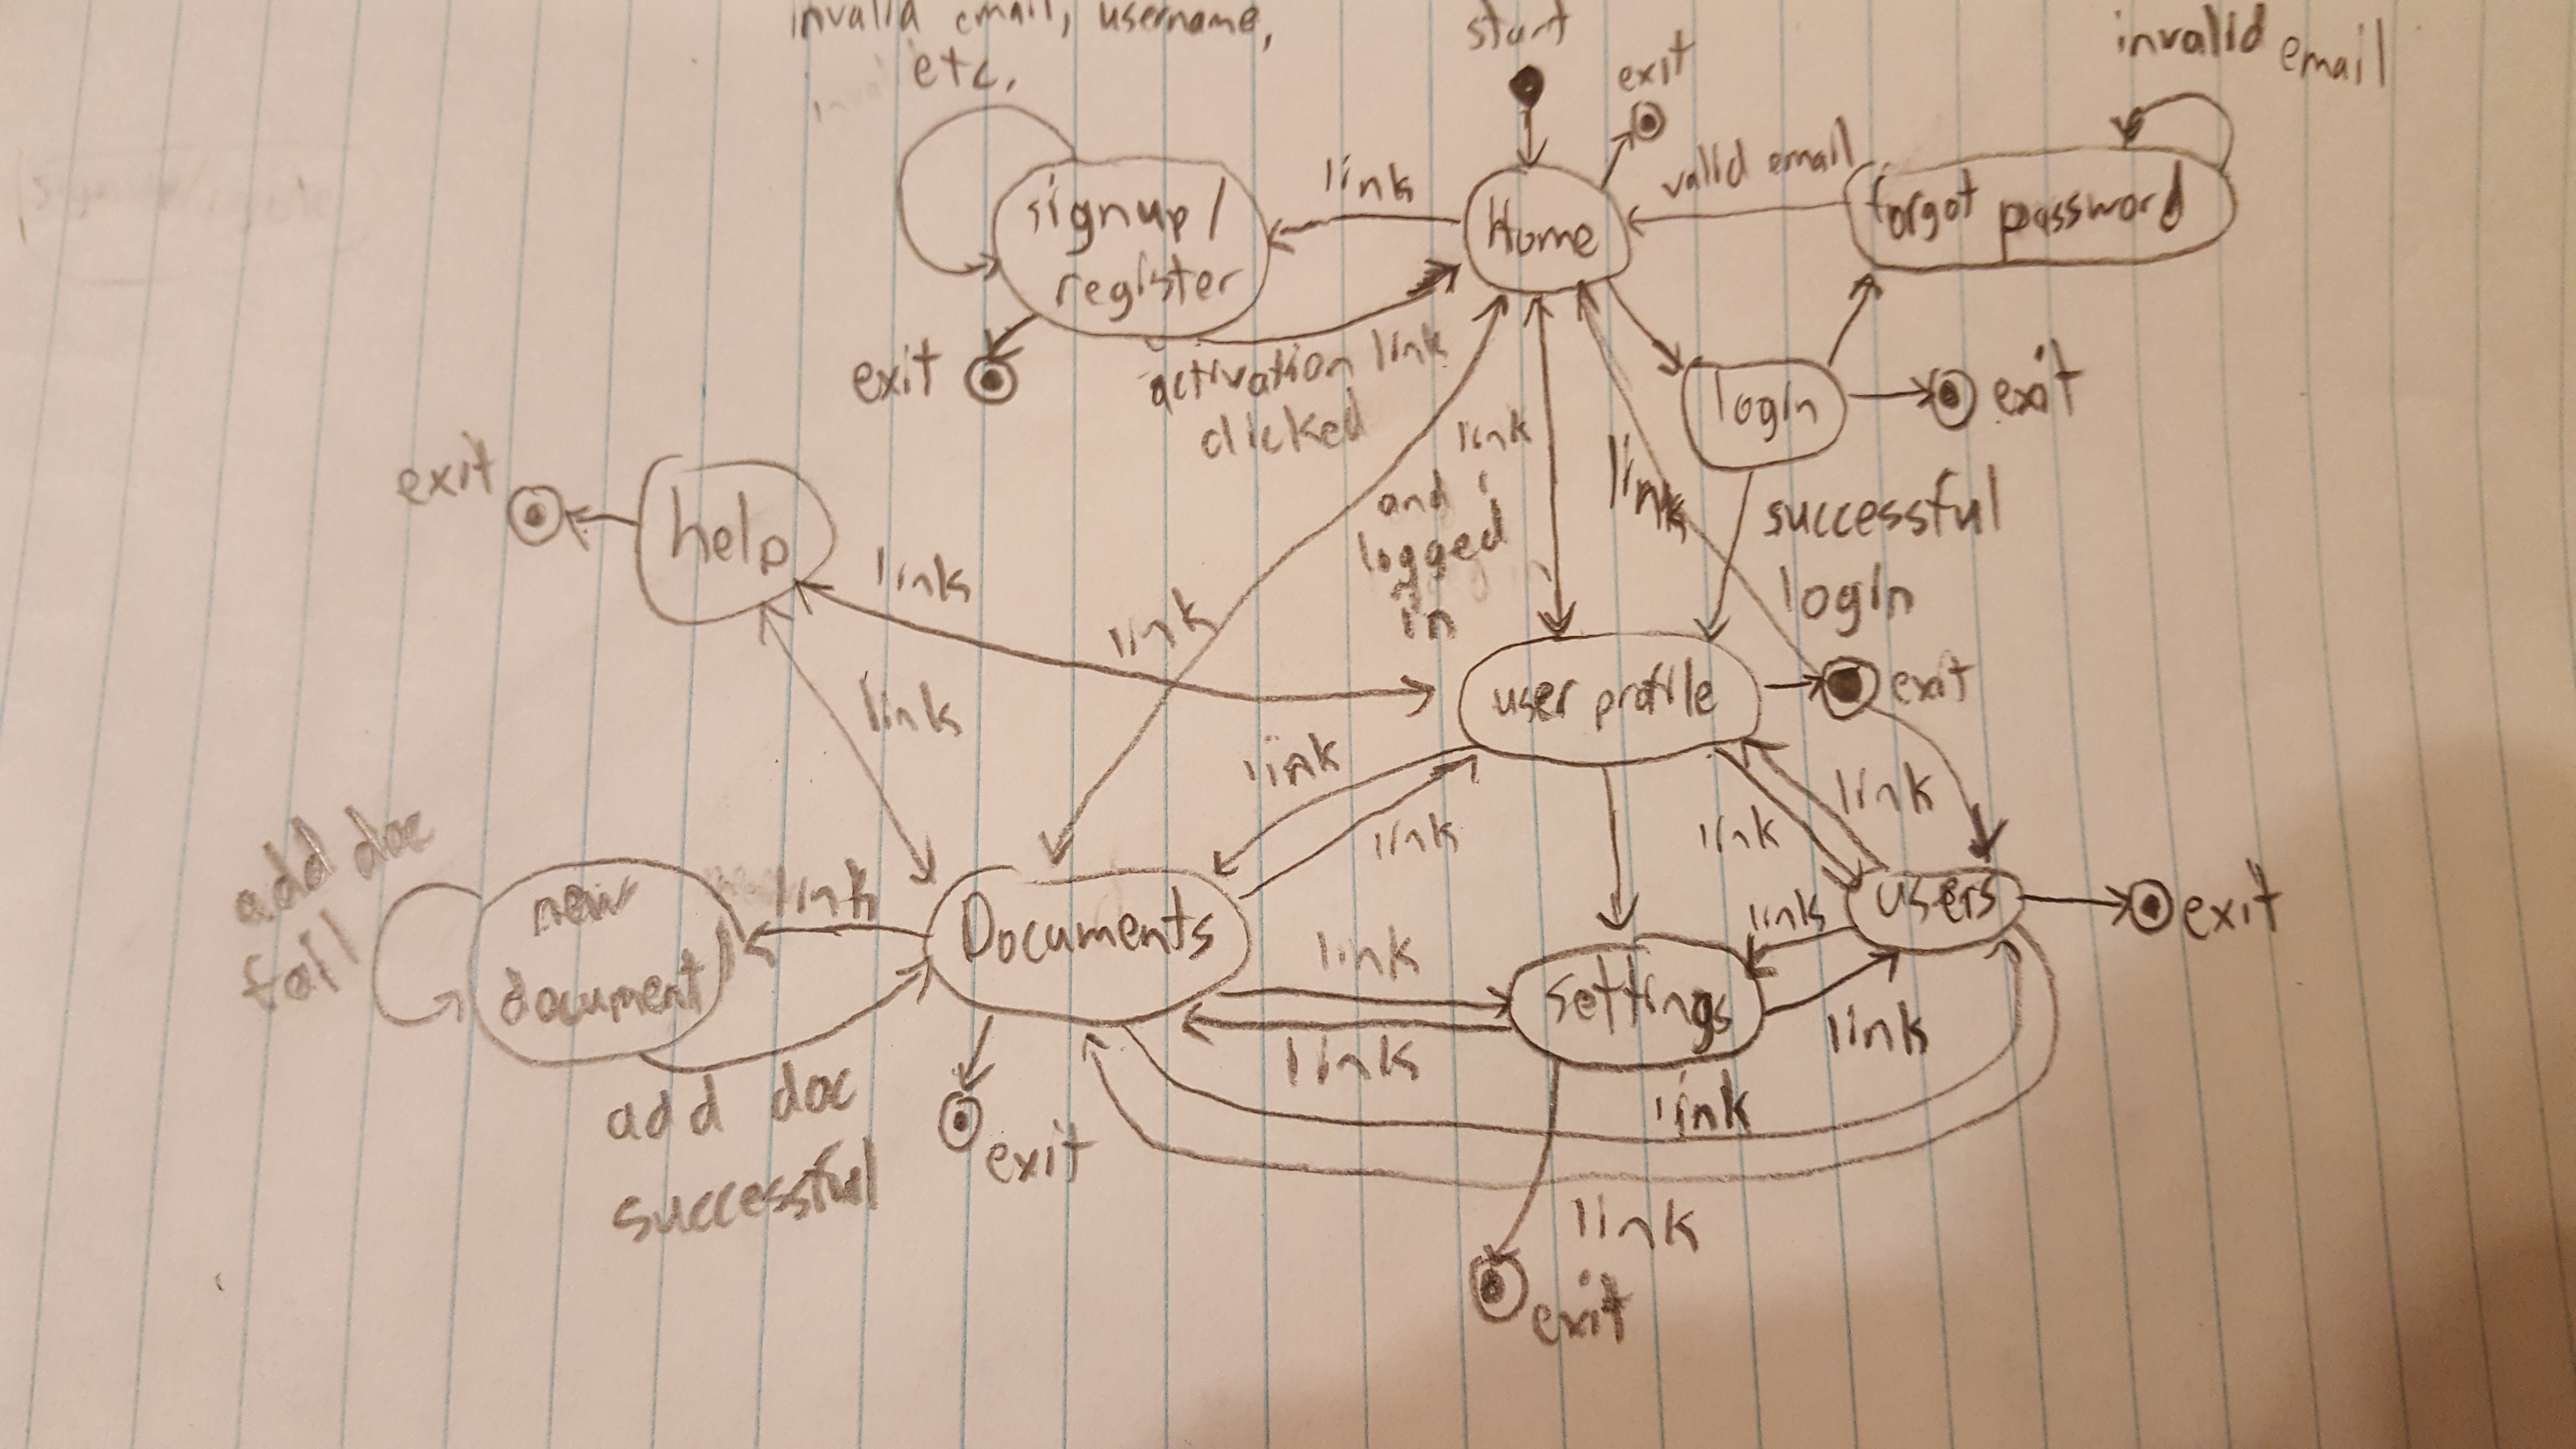 invalid email, username,
etc.
start
exit
invalid email
signup/
register
link
Home
valid email
forgot password
exit
activation link
clicked
login
exit
link
and
logged
in
link
successful
login
exit
help
link
link
link
user profile
exit
link
link
link
link
add doc
fail
new
document
link
Documents
link
link
settings
link
users
exit
link
link
add doc
successful
exit
link
exit